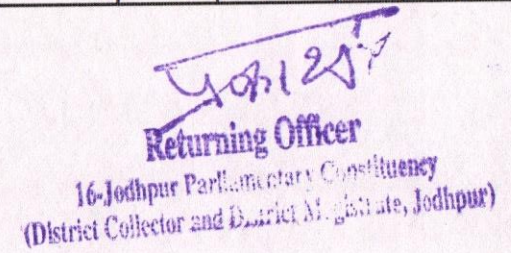 Returning Officer
16-Jodhpur Parliamentary Constituency
(District Collector and District Magistrate, Jodhpur)